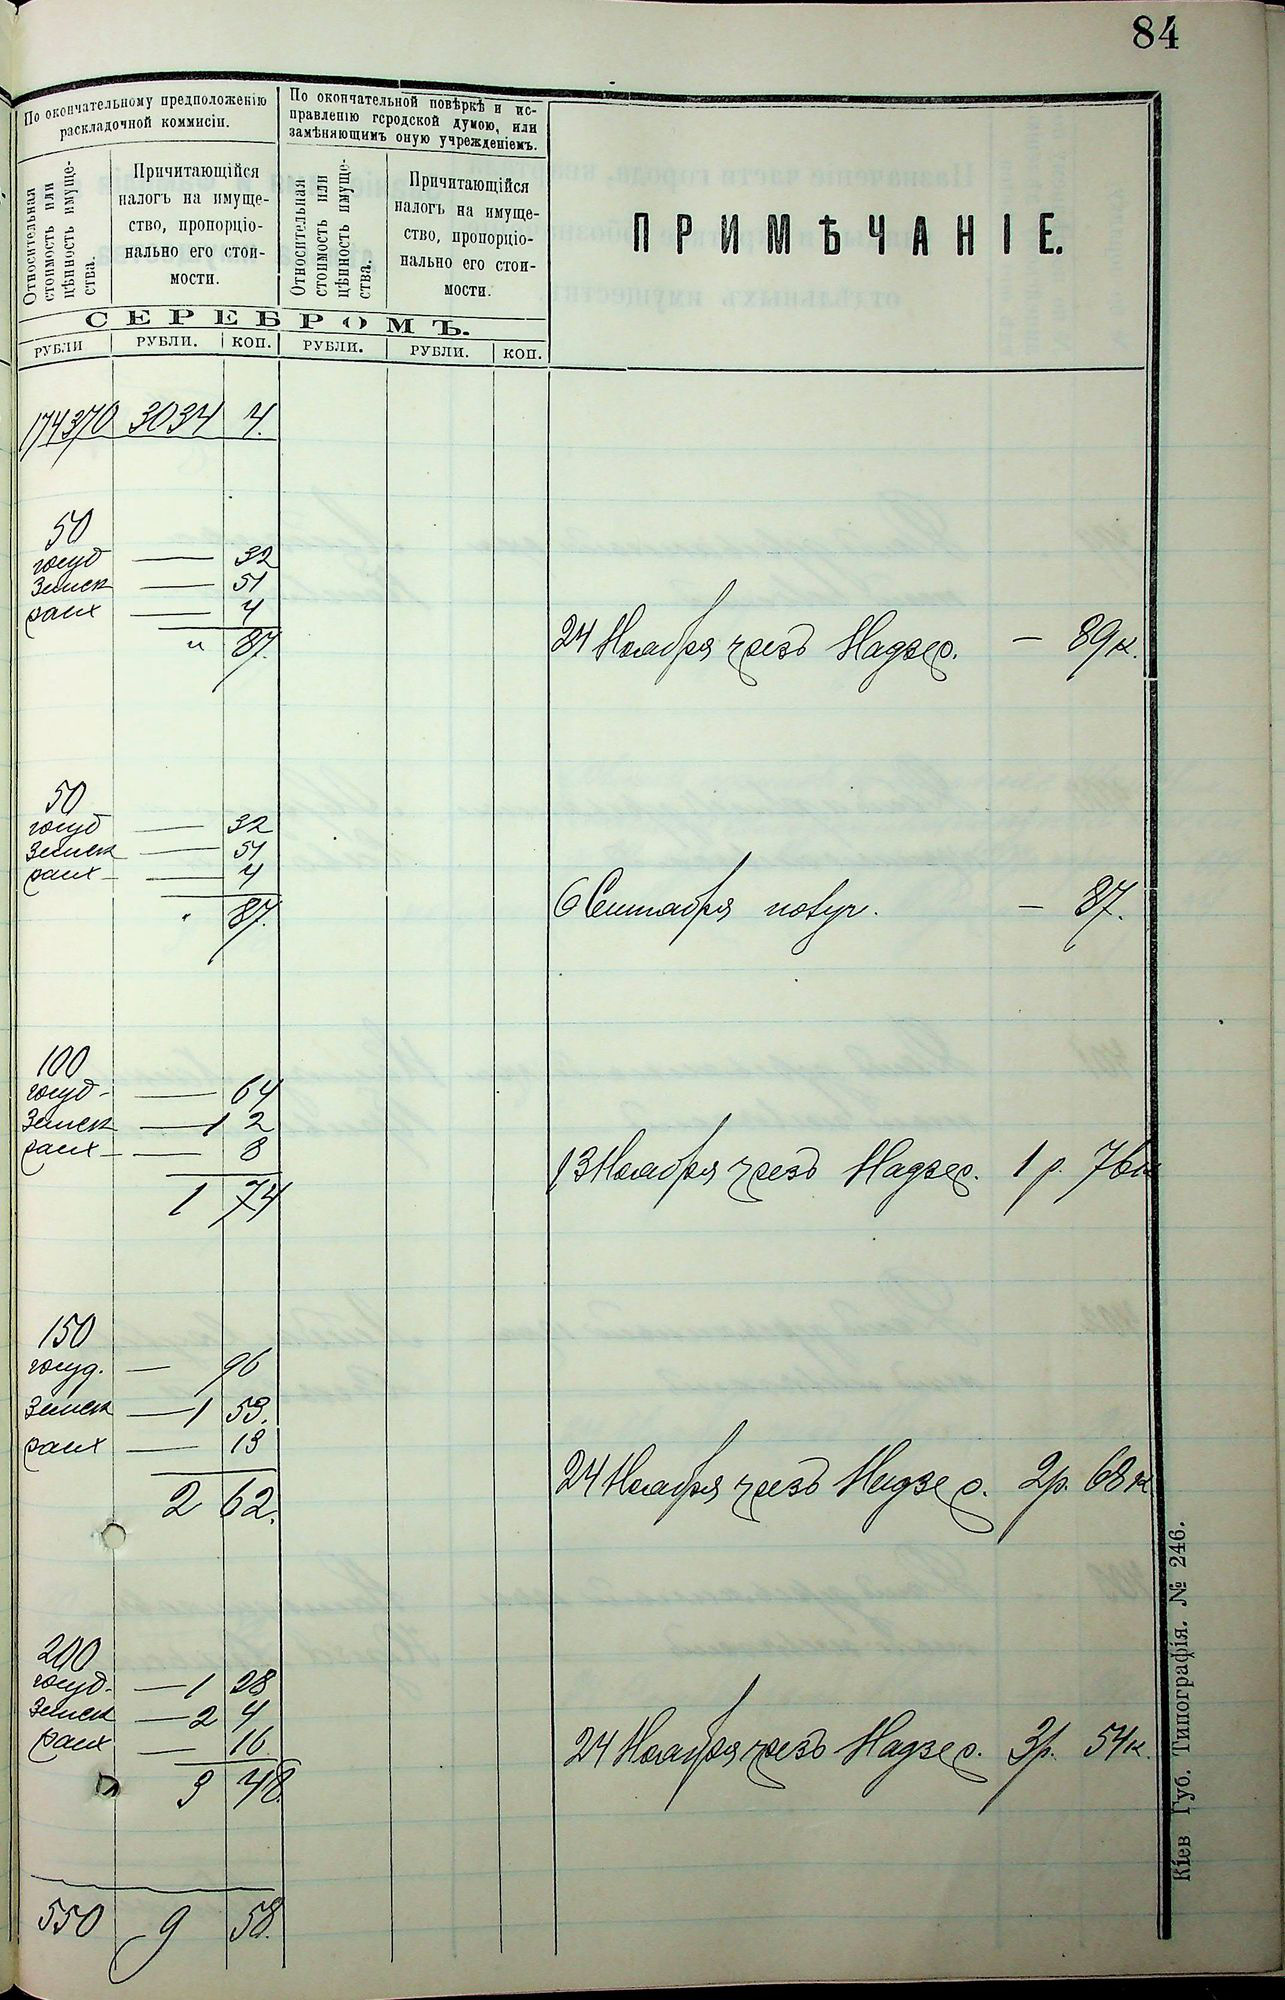 84
По окончательному предположенію
раскладочной коммисіи.
По окончательной повѣркѣ и ис-
правленію городской думою, или
замѣняющимъ оную учрежденіемъ.
Относительная
стоимость или
цѣнность имуще-
ства.
Причитающійся
налогъ на имуще-
ство, пропорціо-
нально его стои-
мости.
Относительная
стоимость или
цѣнность имуще-
ства.
Причитающійся
налогъ на имуще-
ство, пропорціо-
нально его стои-
мости.
ПРИМѢЧАНІЕ.
СЕРЕБРОМЪ.
РУБЛИ РУБЛИ. КОП. РУБЛИ. РУБЛИ. КОП.
174370 3034 4.
50
госуд — 32
Земск — 51
расх — 4
" 87.
24 Ноября чрезъ Надзер. — 89 к.
50
госуд — 32
Земск — 51
расх — 4
" 87.
6 Сентября — 87.
100
госуд — 64
Земск — 1 2
расх — 8
1 74
13 Ноября чрезъ Надзер. 1 р. 76 к
150
госуд. — 96
Земск — 1 53.
расх — 13
2 62.
24 Ноября чрезъ Надзер. 2 р. 68 к
200
госуд. — 1 28
Земск — 2 4
расх — 16
3 48.
24 Ноября чрезъ Надзер. 3 р. 54 к.
550 9 58.
Кіев Губ. Типографія. № 246.